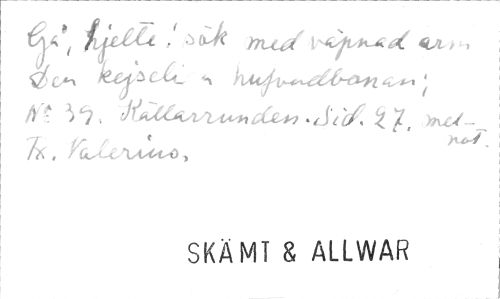 Gå, hjelte! sök med väpnad arm
Den kejserliga hufvudbanan;
No 39. Källarrunden. Sid. 27. mel-
not.
Tx. Valerius.
SKÄMT & ALLWAR